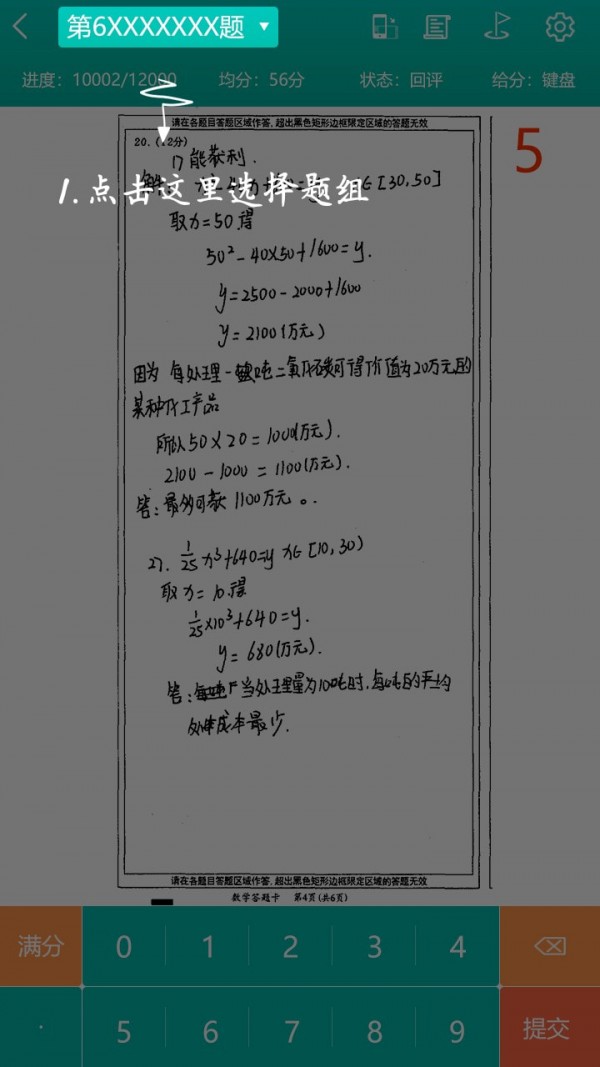 第6XXXXXXX题
进度：10002/12000 均分：56分 状态：回评 给分：键盘
请在各题目答题区域作答，超出黑色矩形边框限定区域的答题无效
20. (12分)
5
1) 能获利.
1.点击这里选择题组
∈[30,50]
取x=50得
50²-40×50+1600=y.
y=2500-2000+1600
y=2100(万元)
因为 每处理一吨二氧化碳可得价值为20万元的
某种化工产品
所以50×20=1000(万元).
2100-1000=1100(万元).
答:最多可获1100万元。
2). 1/25 x³+640=y x∈[10,30)
取x=10得
1/25×10³+640=y.
y=680(万元).
答:当处理量为10吨时,每吨的平均
处理成本最少.
请在各题目答题区域作答，超出黑色矩形边框限定区域的答题无效
数学答题卡 第4页(共6页)
满分 0 1 2 3 4
. 5 6 7 8 9 提交